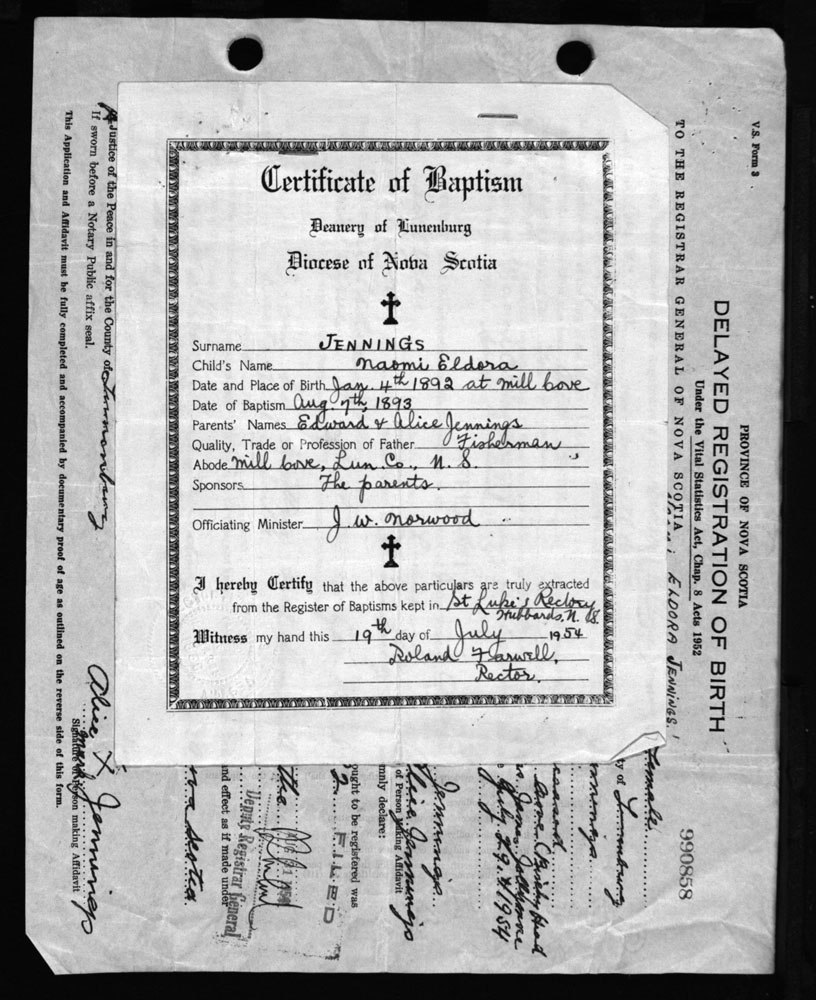 Certificate of Baptism
Deanery of Lunenburg
Diocese of Nova Scotia
Surname JENNINGS
Child's Name Naomi Eldora
Date and Place of Birth Jan. 4th 1892 at Mill Cove
Date of Baptism Aug. 7th, 1893
Parents' Names Edward & Alice Jennings
Quality, Trade or Profession of Father Fisherman
Abode Mill Cove, Lun. Co., N. S.
Sponsors The parents.
Officiating Minister J. W. Norwood
I hereby Certify that the above particulars are truly extracted
from the Register of Baptisms kept in St Luke's Rectory
Hubbards, N. S.
Witness my hand this 19th day of July 1954
Roland Harwell,
Rector.
V.S. Form 3
PROVINCE OF NOVA SCOTIA
DELAYED REGISTRATION OF BIRTH
Under the Vital Statistics Act, Chap. 8 Acts 1952
TO THE REGISTRAR GENERAL OF NOVA SCOTIA
ELDORA JENNINGS
990858
Female
ty of Lunenburg
nnings
July 29, 1954
Jennings
Alice Jennings
of Person Making Affidavit
mnly declare:
ought to be registered was
2 FILED
the
Deputy Registrar General
and effect as if made under
ova Scotia
A Justice of the Peace in and for the County of Lunenburg
If sworn before a Notary Public affix seal.
Alice X Jennings
mark
Signature of Person making Affidavit
This Application and Affidavit must be fully completed and accompanied by documentary proof of age as outlined on the reverse side of this form.